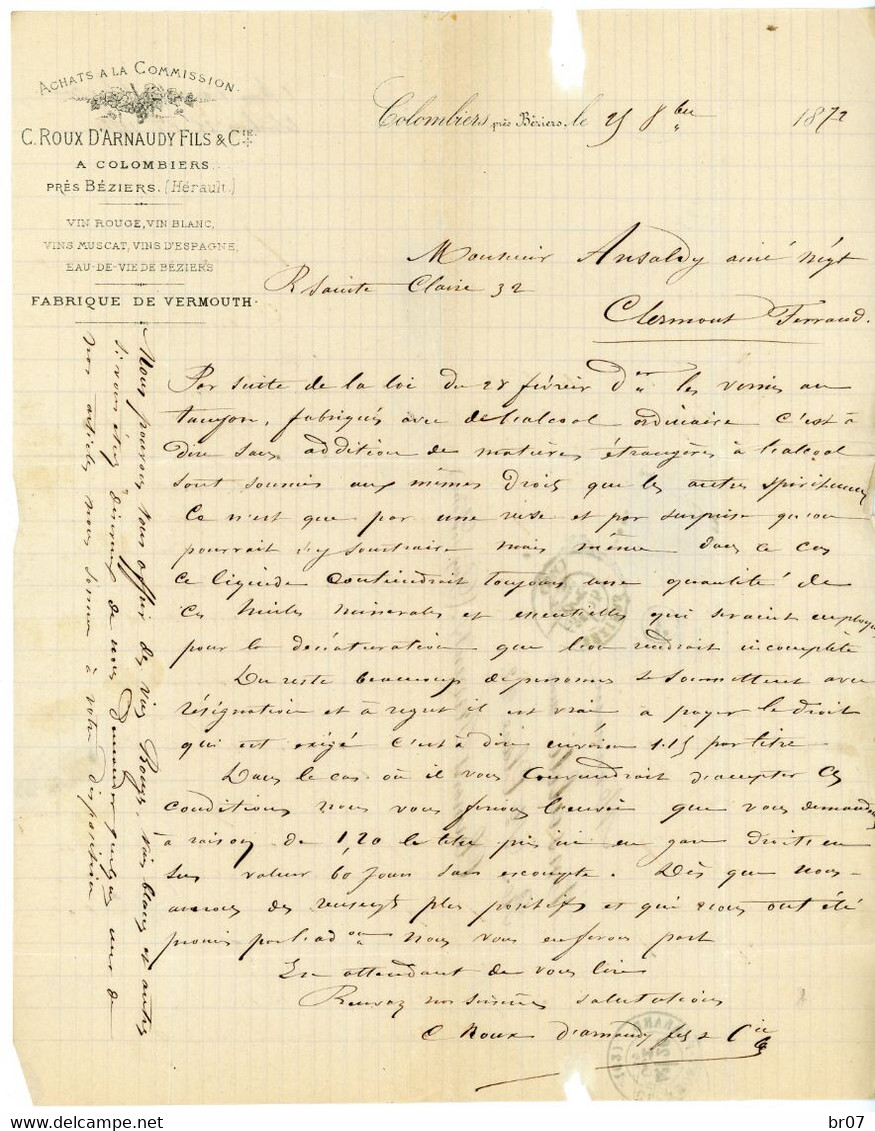 ACHATS A LA COMMISSION.
C. ROUX D'ARNAUDY FILS & CIE.
A COLOMBIERS.
PRÈS BÉZIERS. (Hérault.)
VIN ROUGE, VIN BLANC,
VINS MUSCAT, VINS D'ESPAGNE,
EAU-DE-VIE DE BÉZIERS
FABRIQUE DE VERMOUTH.
Colombiers, près Béziers, le 25 8bre 1872
Monsieur Ansaldy ainé négt
R Sainte Claire 32
Clermont Ferrand.
Par suite de la loi du 28 février der les vernis au
tampon, fabriqués avec de l'alcool ordinaire c'est à
dire sans addition de matières étrangères à l'alcool
sont soumis aux mêmes droits que les autres spiritueux
Ce n'est que par une ruse et par surprise qu'on
pourrait s'y soustraire mais même dans ce cas
ce liquide contiendrait toujours une quantité de
ces huiles minerales et essentielles qui seraient employées
pour la dénaturation que l'on rendrait incomplète
Du reste beaucoup de personnes se soumettent avec
résignation et à regret il est vrai à payer le droit
qui est exigé c'est à dire environ 1.15 par litre
Dans le cas où il vous conviendrait d'accepter ces
conditions nous vous ferions l'envoi que vous demandez
à raison de 1,20 le litre pris ici en gare droits en
sus valeur 60 jours sans escompte. Dès que nous
aurons des renseigts plus positifs et qui nous ont été
promis par l'ad on nous vous en ferons part
En attendant de vous lire
Recevez nos sincères salutations
C Roux d'arnaudy fils & Cie
Nous pouvons vous offrir des vins Rouges, vins blancs et autres
Si vous étiez désireux de nous demander quelques uns de
nos articles nous sommes à votre disposition
br07